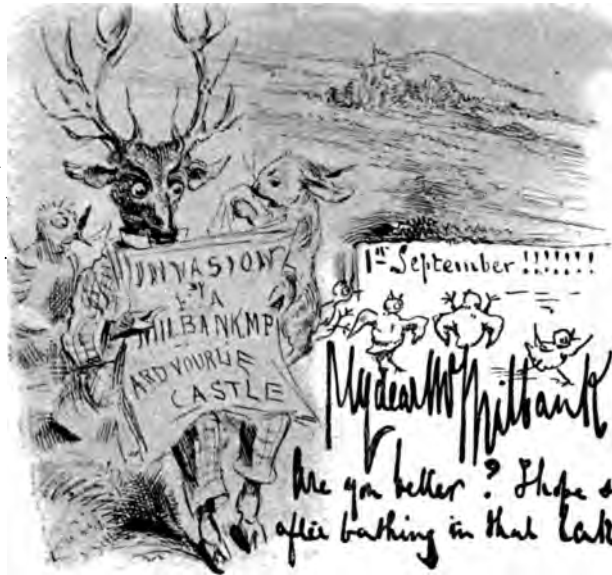 INVASION
BY A
MILBANK MP
ARDVOURLIE
CASTLE
1st September !!!!!!!
My dear Mr Milbank
Are you better? I hope s
after bathing in that Lak